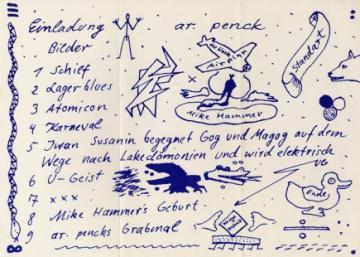 Einladung
ar. penck
Bilder
Airplan
Standart
1 Schilf
2 Lagerblues
3 Atomicon
Mike Hammer
4 Karneval
5 Iwan Susanin begegnet Gog und Magog auf dem
Wege nach Lakedämonien und wird elektrisch
UG
6 U-Geist
Ende
17 xxx
8 Mike Hammers Geburt
9 ar. pencks Grabmal